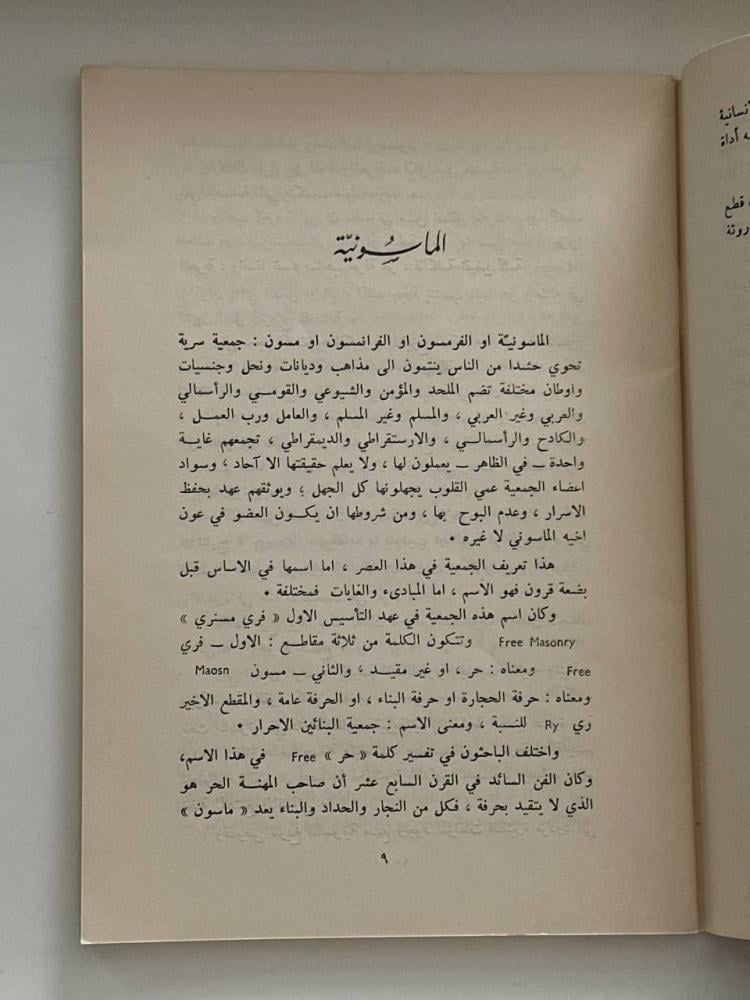 الماسونيّة
الماسونيّة او الفرمسون او الفرانمسون او مسون : جمعية سرية
تحوي حشدا من الناس ينتمون الى مذاهب وديانات ونحل وجنسيات
واوطان مختلفة تضم الملحد والمؤمن والشيوعي والقومي والرأسمالي
والعربي وغير العربي ، والمسلم وغير المسلم ، والعامل ورب العمل ،
والكادح والرأسمالي ، والارستقراطي والديمقراطي ، تجمعهم غاية
واحدة ــ في الظاهر ــ يعملون لها ، ولا يعلم حقيقتها الا آحاد ، وسواد
اعضاء الجمعية عمي القلوب يجهلونها كل الجهل ؛ ويوثقهم عهد بحفظ
الاسرار ، وعدم البوح بها ، ومن شروطها ان يكون العضو في عون
اخيه الماسوني لا غيره ٠
هذا تعريف الجمعية في هذا العصر ، اما اسمها في الاساس قبل
بضعة قرون فهو الاسم ، اما المبادىء والغايات فمختلفة ٠
وكان اسم هذه الجمعية في عهد التأسيس الاول « فري مسنري »
Free Masonry وتتكون الكلمة من ثلاثة مقاطع : الاول ــ فري
Free ومعناه : حر ، او غير مقيد ، والثاني ــ مسون Maosn
ومعناه : حرفة الحجارة او حرفة البناء ، او الحرفة عامة ، والمقطع الاخير
ري Ry للنسبة ، ومعنى الاسم : جمعية البنائين الاحرار ٠
واختلف الباحثون في تفسير كلمة « حر » Free في هذا الاسم،
وكان الفن السائد في القرن السابع عشر أن صاحب المهنة الحر هو
الذي لا يتقيد بحرفة ، فكل من النجار والحداد والبناء يعد « ماسون »
٩
نسانية
ه أداة
قطع
روثة